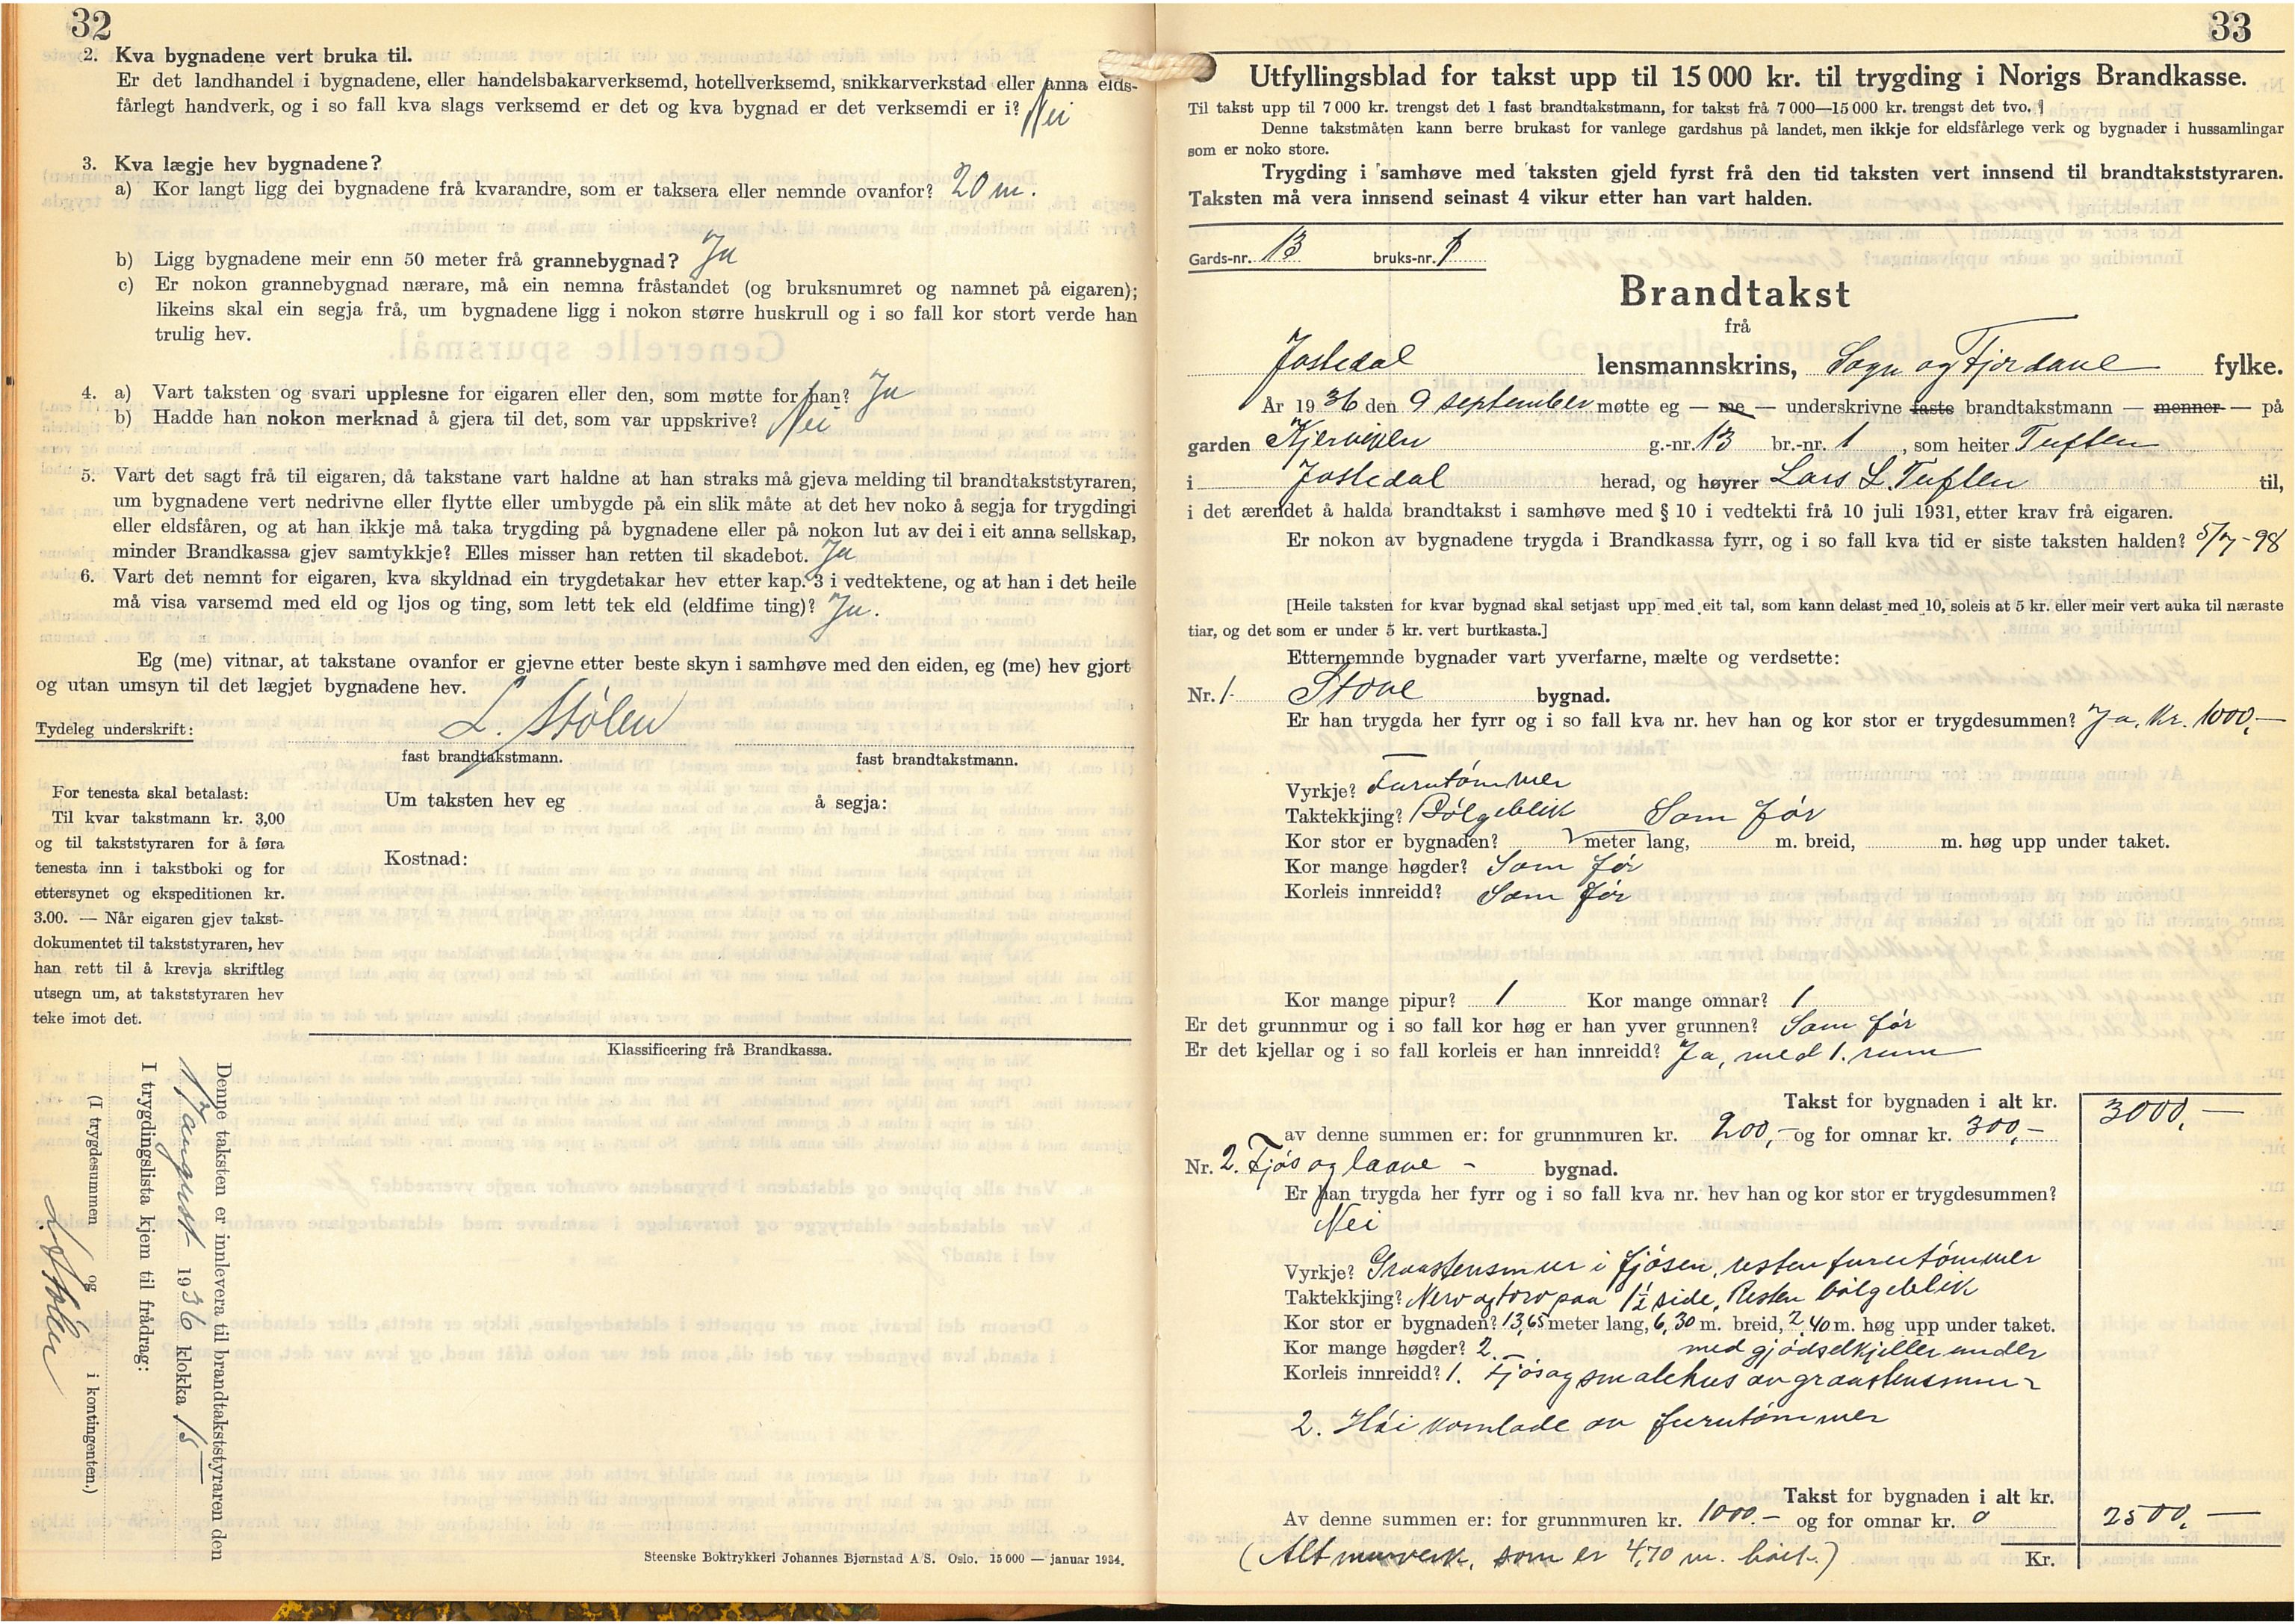 32
2. Kva bygnadene vert bruka til.
Er det landhandel i bygnadene, eller handelsbakarverksemd, hotellverksemd, snikkarverkstad eller anna elds-
fårlegt handverk, og i so fall kva slags verksemd er det og kva bygnad er det verksemdi er i? Nei
3. Kva lægje hev bygnadene?
a) Kor langt ligg dei bygnadene frå kvarandre, som er taksera eller nemnde ovanfor? 20 m.
b) Ligg bygnadene meir enn 50 meter frå grannebygnad? Ja
c) Er nokon grannebygnad nærare, må ein nemna fråstandet (og bruksnumret og namnet på eigaren);
likeins skal ein segja frå, um bygnadene ligg i nokon større huskrull og i so fall kor stort verde han
trulig hev.
4. a) Vart taksten og svari upplesne for eigaren eller den, som møtte for han? Ja
b) Hadde han nokon merknad å gjera til det, som var uppskrive? Nei
5. Vart det sagt frå til eigaren, då takstane vart haldne at han straks må gjeva melding til brandtakststyraren,
um bygnadene vert nedrivne eller flytte eller umbygde på ein slik måte at det hev noko å segja for trygdingi
eller eldsfåren, og at han ikkje må taka trygding på bygnadene eller på nokon lut av dei i eit anna sellskap,
minder Brandkassa gjev samtykkje? Elles misser han retten til skadebot. Ja
6. Vart det nemnt for eigaren, kva skyldnad ein trygdetakar hev etter kap. 3 i vedtektene, og at han i det heile
må visa varsemd med eld og ljos og ting, som lett tek eld (eldfime ting)? Ja.
Eg (me) vitnar, at takstane ovanfor er gjevne etter beste skyn i samhøve med den eiden, eg (me) hev gjort
og utan umsyn til det lægjet bygnadene hev.
Tydeleg underskrift: L. Stølen
fast brandtakstmann. fast brandtakstmann.
For tenesta skal betalast:
Til kvar takstmann kr. 3,00
og til takststyraren for å føra
tenesta inn i takstboki og for
ettersynet og ekspeditionen kr.
3.00. — Når eigaren gjev takst-
dokumentet til takststyraren, hev
han rett til å krevja skriftleg
utsegn um, at takststyraren hev
teke imot det.
Um taksten hev eg å segja:
Kostnad:
Klassificering frå Brandkassa.
Denne taksten er innlevera til brandtakststyraren den
1936 klokka 15
I trygdingslista kjem til frådrag:
(I trygdesummen og i kontingenten.)
L. Stølen
Steenske Boktrykkeri Johannes Bjørnstad A/S. Oslo. 15 000 — januar 1934.
33
Utfyllingsblad for takst upp til 15 000 kr. til trygding i Norigs Brandkasse.
Til takst upp til 7 000 kr. trengst det 1 fast brandtakstmann, for takst frå 7 000—15 000 kr. trengst det tvo.
Denne takstmåten kann berre brukast for vanlege gardshus på landet, men ikkje for eldsfårlege verk og bygnader i hussamlingar
som er noko store.
Trygding i samhøve med taksten gjeld fyrst frå den tid taksten vert innsend til brandtakststyraren.
Taksten må vera innsend seinast 4 vikur etter han vart halden.
Gards-nr. 13 bruks-nr. 1
Brandtakst
frå
Jostedal lensmannskrins, Sogn og Fjordane fylke.
År 1936 den 9 september møtte eg — me — underskrivne faste brandtakstmann — menner — på
garden g.-nr. 13 br.-nr. 1, som heiter Tuften
i Jostedal herad, og høyrer Lars L. Tuften til,
i det ærendet å halda brandtakst i samhøve med § 10 i vedtekti frå 10 juli 1931, etter krav frå eigaren.
Er nokon av bygnadene trygda i Brandkassa fyrr, og i so fall kva tid er siste taksten halden? 5/7-98
[Heile taksten for kvar bygnad skal setjast upp med eit tal, som kann delast med 10, soleis at 5 kr. eller meir vert auka til næraste
tiar, og det som er under 5 kr. vert burtkasta.]
Etternemnde bygnader vart yverfarne, mælte og verdsette:
Nr. 1. Stove bygnad.
Er han trygda her fyrr og i so fall kva nr. hev han og kor stor er trygdesummen? Ja, Kr. 1000,—
Vyrkje? Furutömmer
Taktekkjing? Bölgeblik Som för
Kor stor er bygnaden? meter lang, m. breid, m. høg upp under taket.
Kor mange høgder? Som för
Korleis innreidd? Som för
Kor mange pipur? 1 Kor mange omnar? 1
Er det grunnmur og i so fall kor høg er han yver grunnen? Som för
Er det kjellar og i so fall korleis er han innreidd? Ja, med 1. rum
Takst for bygnaden i alt kr. 3000,—
av denne summen er: for grunnmuren kr. 200,— og for omnar kr. 300,—
Nr. 2. Fjös og laave - bygnad.
Er han trygda her fyrr og i so fall kva nr. hev han og kor stor er trygdesummen?
Nei
Vyrkje? Graastensmur i fjösen, resten furutömmer
Taktekkjing? Never og torv paa 1½ side, Resten bölgeblik
Kor stor er bygnaden? 13,65 meter lang, 6,30 m. breid, 2,40 m. høg upp under taket.
Kor mange høgder? 2. med gjödselkjeller under
Korleis innreidd? 1. Fjös og smalehus av graastensmur
2. Höi kornlade av furutömmer
Takst for bygnaden i alt kr. 2500,—
Av denne summen er: for grunnmuren kr. 1000.— og for omnar kr. 0
(Alt murverk, som er 4,70 m. höit.) Kr.